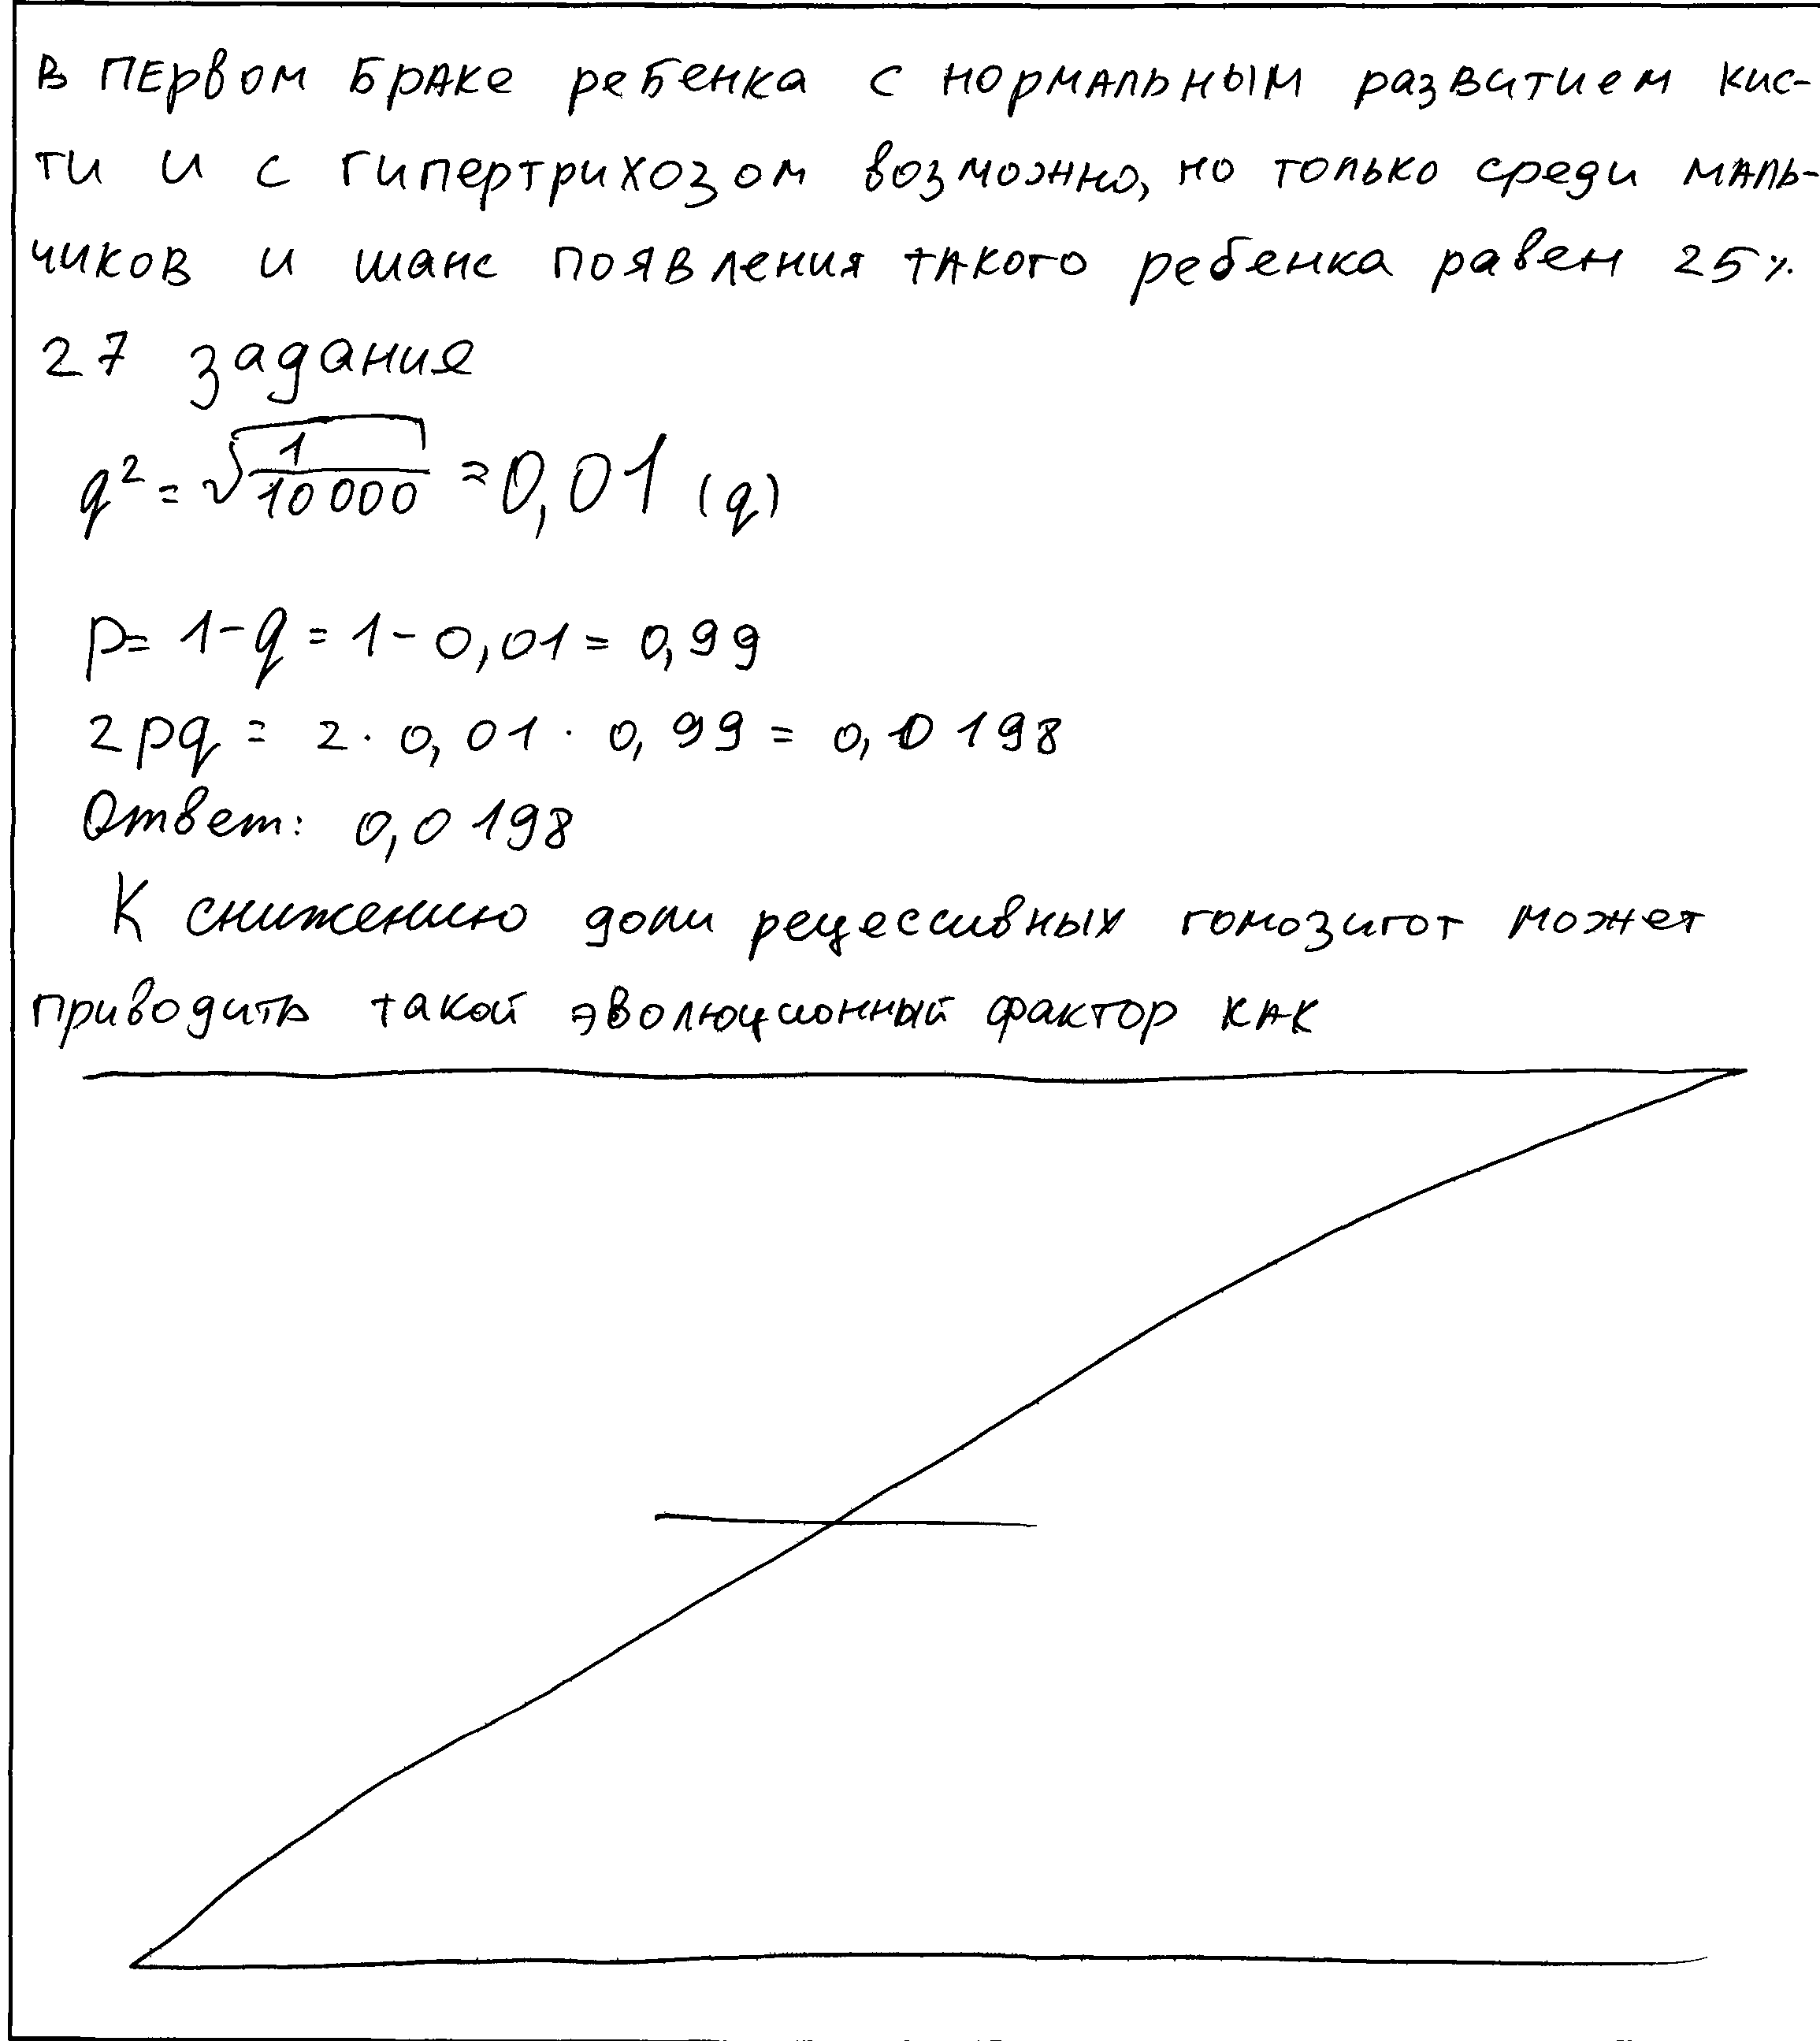 В первом браке ребенка с нормальным развитием кис-
ти и с гипертрихозом возможно, но только среди маль-
чиков и шанс появления такого ребенка равен 25%
27 задания
q² = √(1/10000) = 0,01 (q)
p = 1 - q = 1 - 0,01 = 0,99
2pq = 2 · 0,01 · 0,99 = 0,0198
Ответ: 0,0198
К снижению доли рецессивных гомозигот может
приводить такой эволюционный фактор как